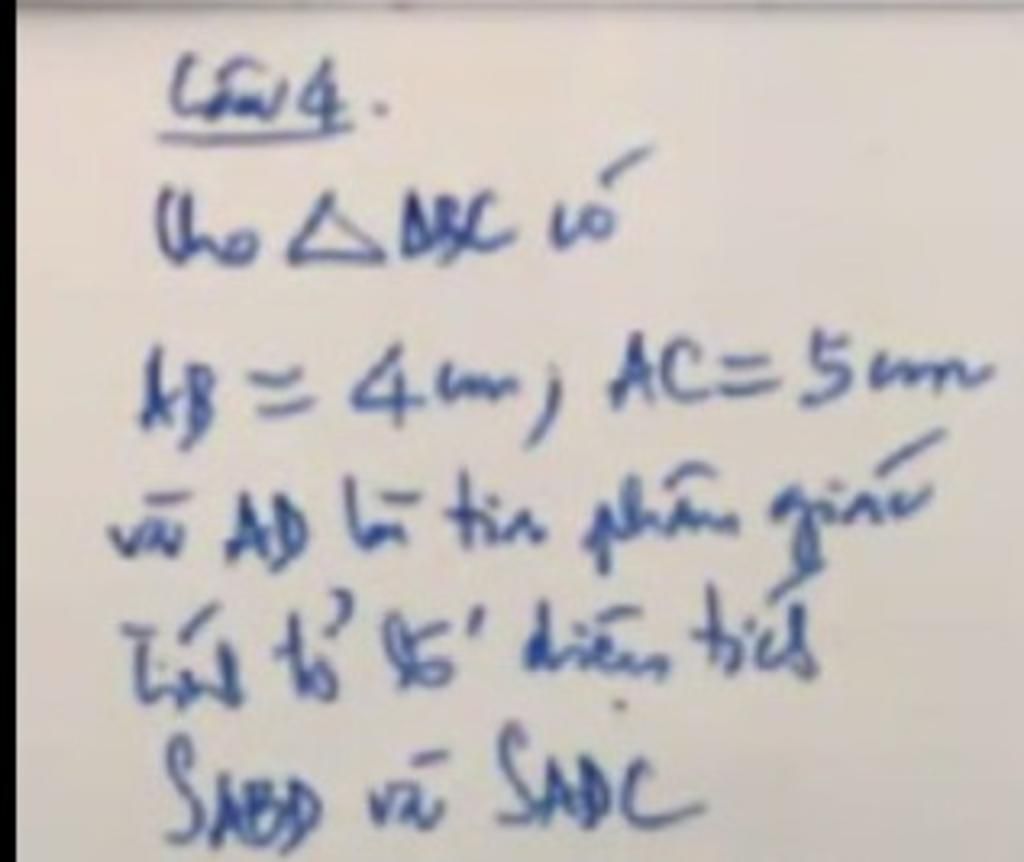 Câu 4.
Cho △ ABC có
AB = 4 cm; AC = 5 cm
và AD là tia phân giác
Tính tỉ số diện tích
SABD và SADC